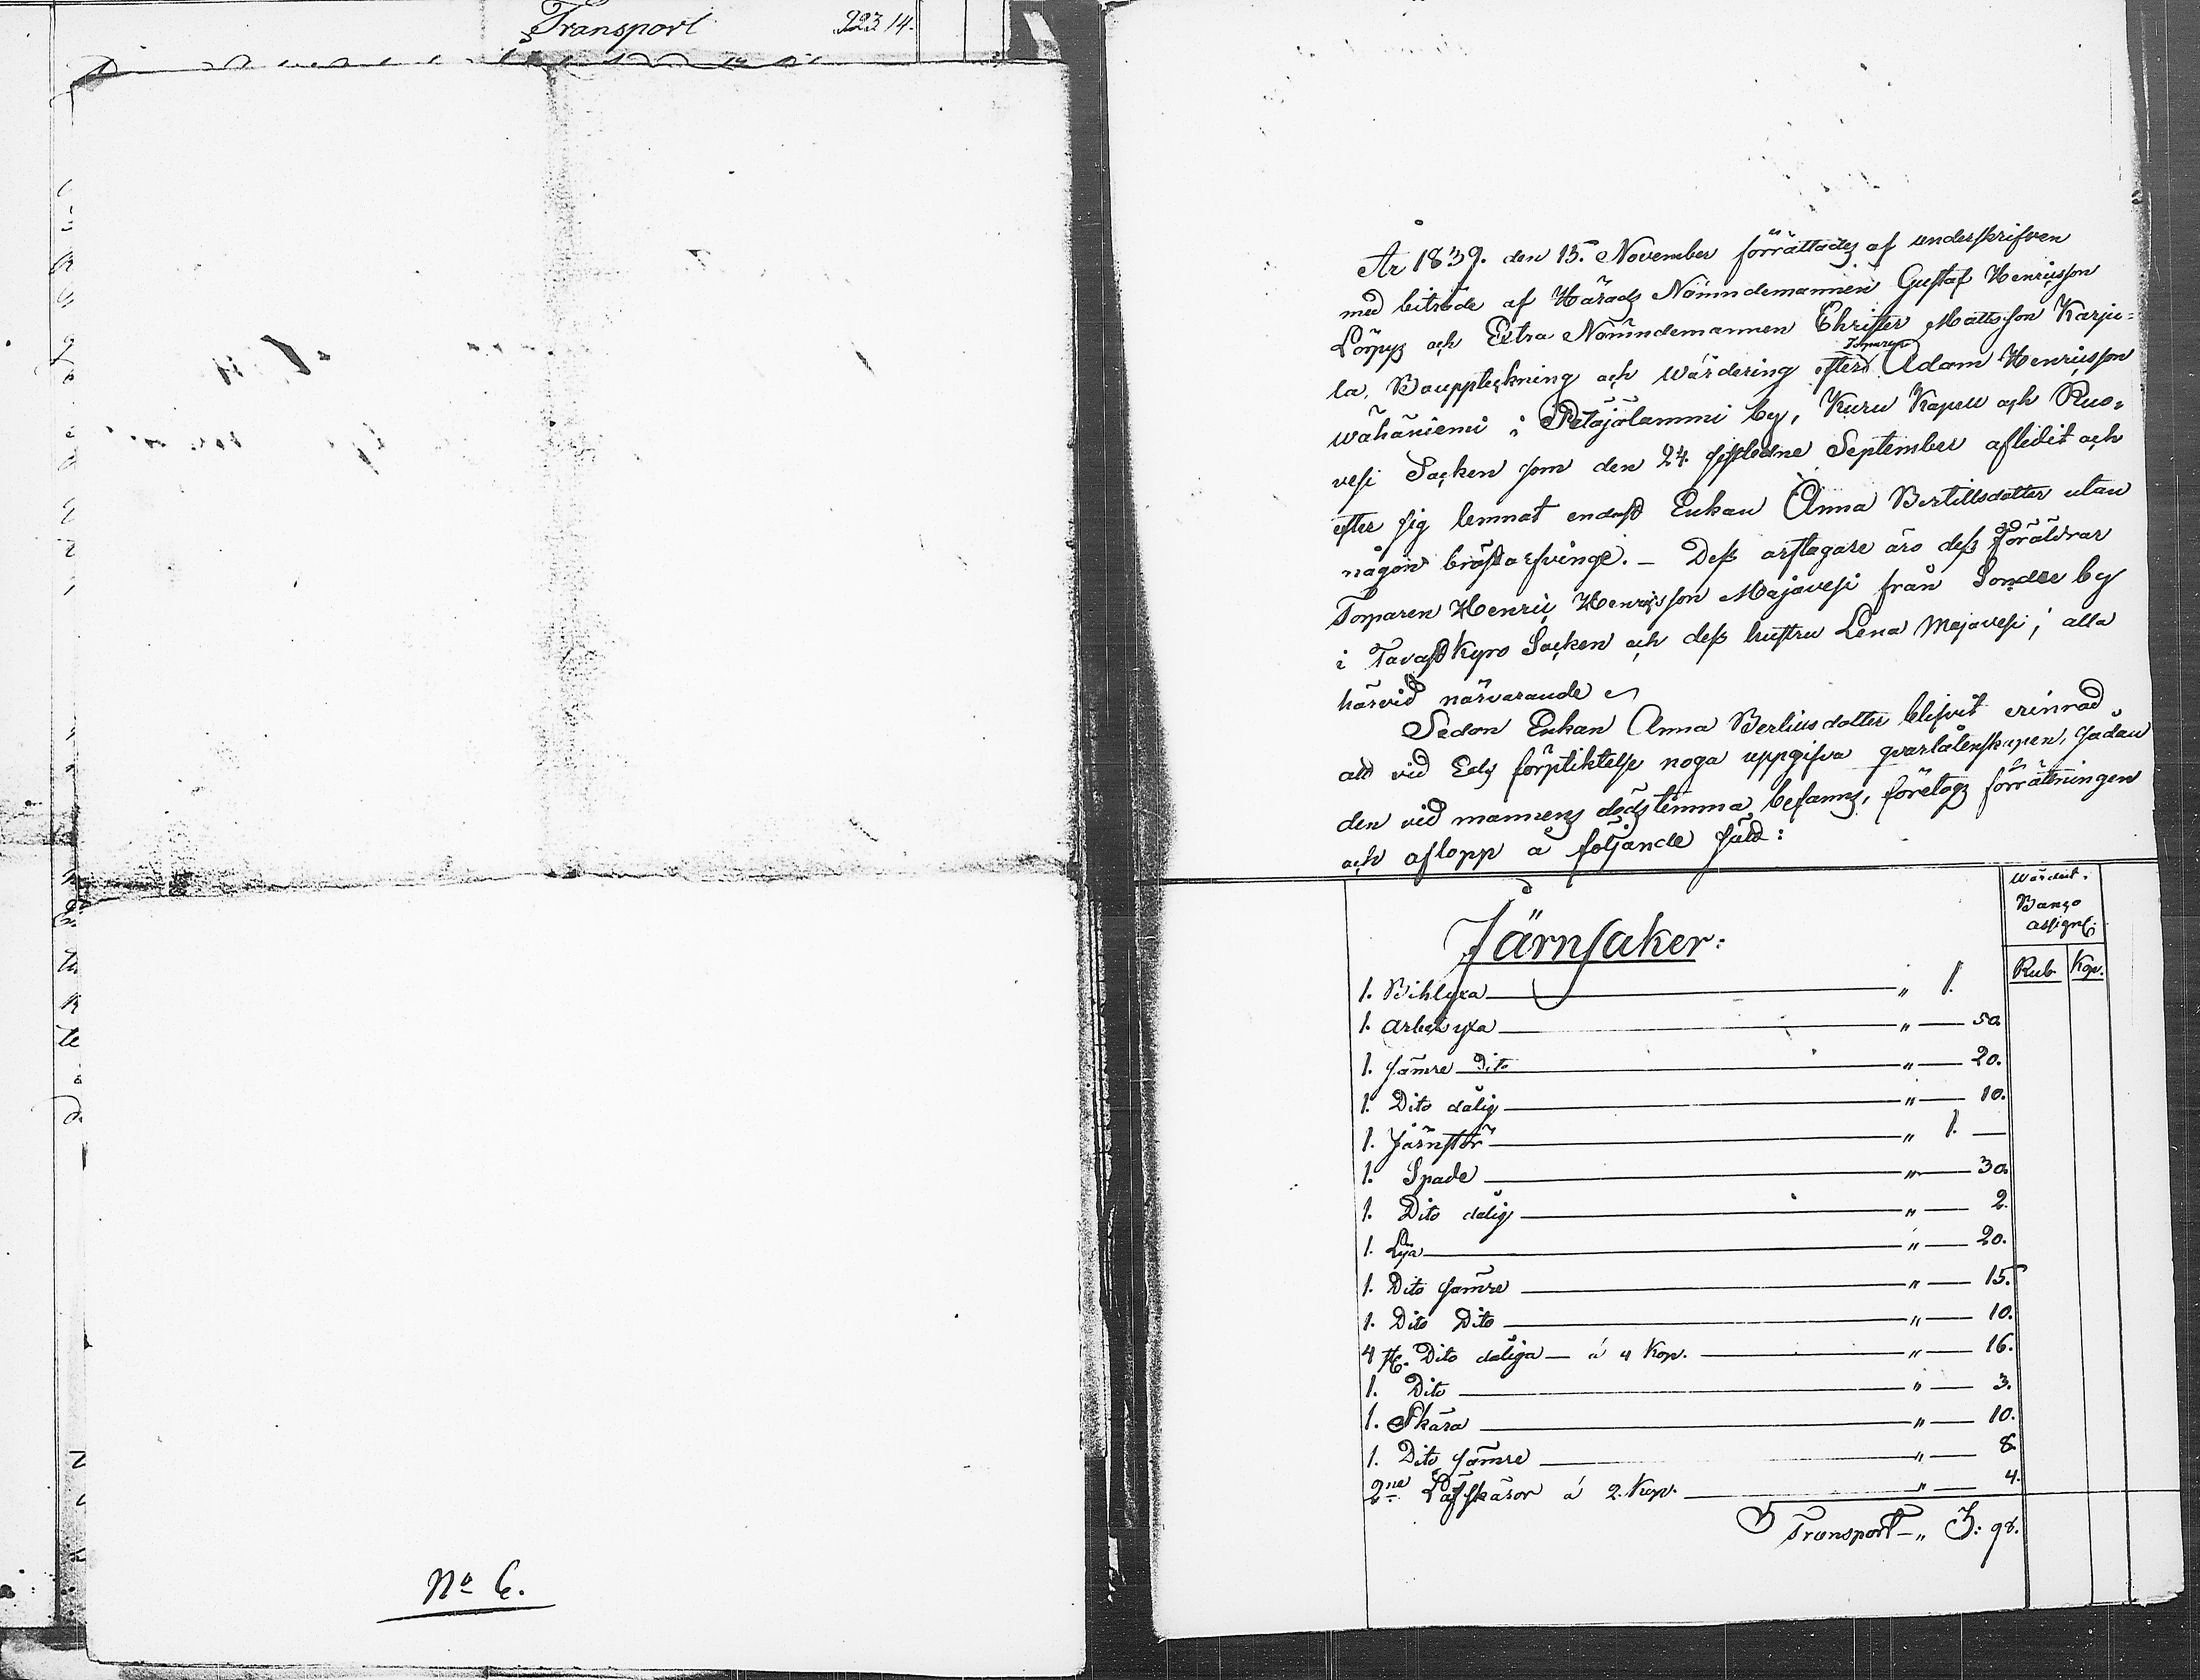 Transport 223 14.
No 6.
År 1839. den 15. November förrättades af underskrifven
med biträde af Härads Nämndemannen Gustaf Henricsson
Lörpys och Extra Nämndemannen Christer Mattsson Karju-
la, Bouppteckning och wärdering efter Torparen Adam Henricsson
wähäniemi i Petäjälammi by, Kuru Kapell och Ruo-
vesi Socken som den 24 sistledne September aflidit och
efter sig lemnat endast Enkan Anna Bertillsdotter utan
någon bröstarfvinge. – Dess arftagare äro dess föräldrar
Torparen Henric Henricsson Majavesi från by
i Tavastkyro Socken och dess hustru Lena Majavesi; alla
härvid närvarande
Sedan Enkan Anna Bertillsdotter blifvit erinrad
att vid Eds förpliktelse noga uppgifva qvarlåtenskapen, sådan
den vid mannens dödstimma befanns, företogs förrättningen
och aflopp å följande sätt:
Wärderit.
Banco
assign:
Rub Kop.
Järnsaker:
1. Bihlyxa " 1.
1. Arbetsyxa " — 50.
1. sämre Dito " — 20.
1. Dito dålig " — 10.
1. Järnstör " 1. —
1. Spade " — 30.
1. Dito dålig " — 2.
1. Lija " — 20.
1. Dito sämre " — 15.
1. Dito Dito " — 10.
4 st. Dito dåliga — á 4 Kop. " — 16.
1. Dito " — 3.
1. Skära " — 10.
1. Dito sämre " — 8.
2ne Löfskäror á 2. Kop. " — 4.
Transport — " 3: 98.